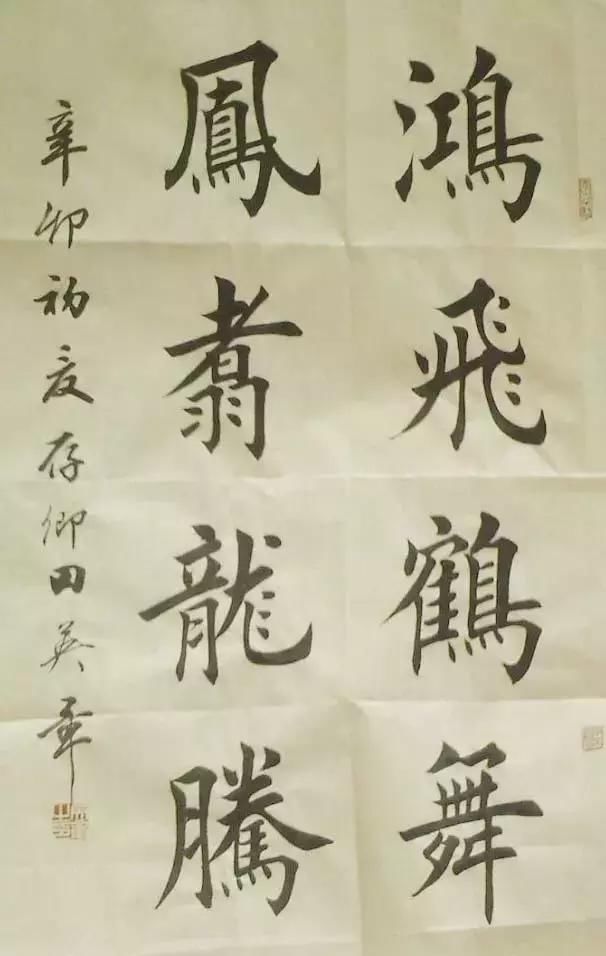 鴻飛鶴舞
鳳翥龍騰
辛卯初夏存卿田英章